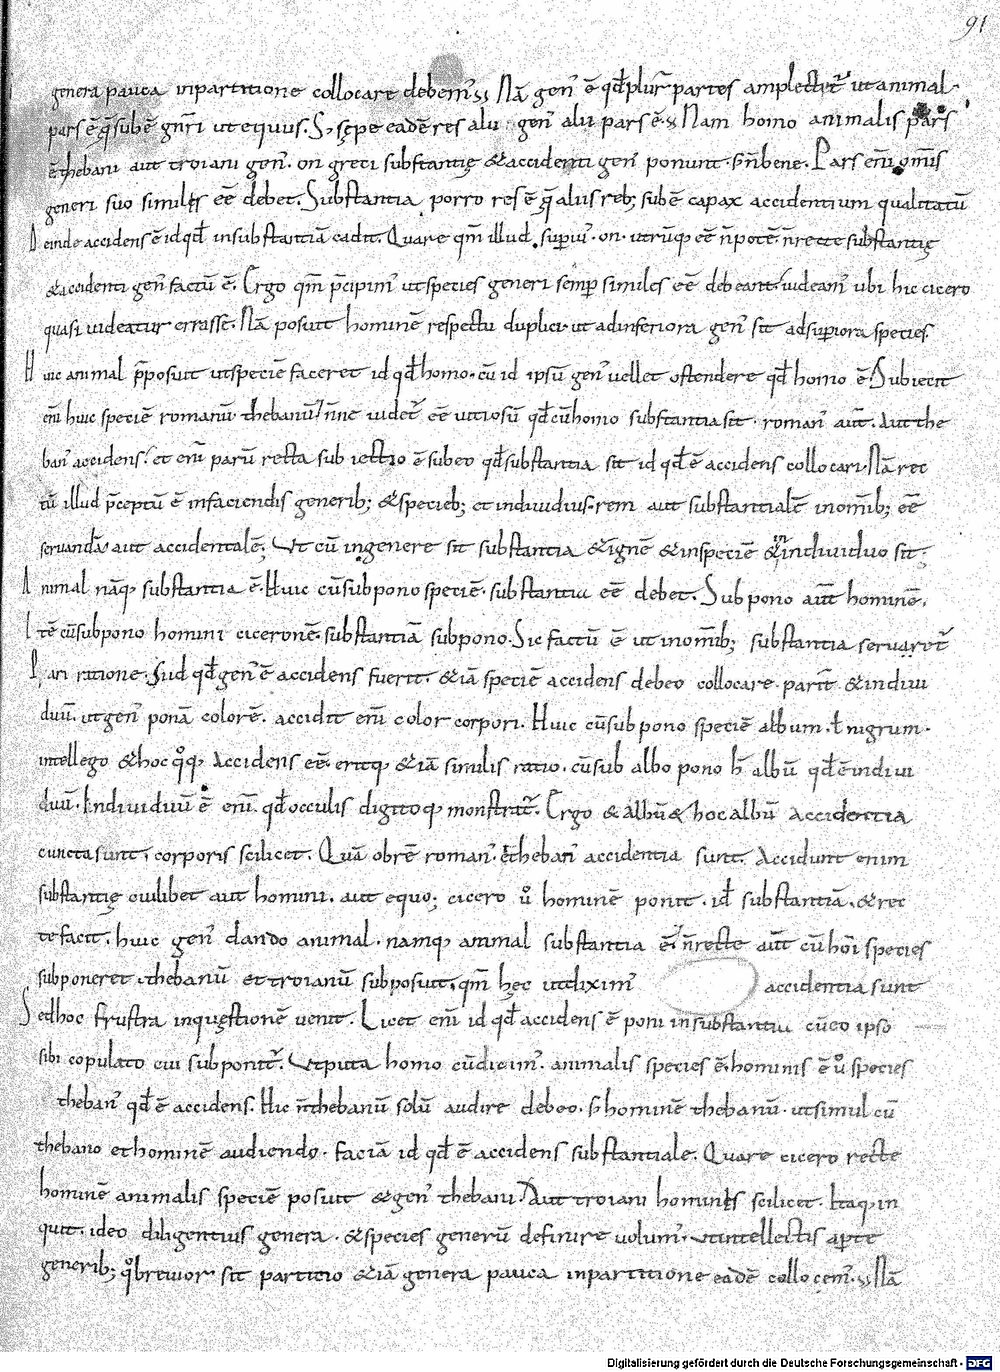 91
genera pauca inpartitione collocare debem᷒. Nā gen᷒ ē qđ plur̄ partes amplectit᷒ ut animal.
pars ē q̄ sub ē gn̄ri ut equus. S; sępe eadē res alii gen᷒ alii pars ē. Nam homo animalis pars
ē thebani aut troiani gen᷒. on greci substantię & accidenti gen᷒ ponunt. s; n̄ bene. Pars eni᷒ om̄is
generi suo similis eē debet. Substantia porro res ē q̄ aliis reb; sub ē capax accidentium qualitatū
Deinde accidens ē id qđ insubstantiā cadit. Quare qm̄ illud supiu᷒ on. utrūq; eē n̄ potē. n̄ recte substantię
& accidenti gen᷒ factū ē. Ergo qm̄ p̄cipim᷒ ut species generi semp̄ similes eē debeant. uideam᷒ ubi hic cicero
quasi uideatur errasse. Nā posuit hominē respectu duplici ut adinferiora gen᷒ sit adsup̄iora species.
Huic animal p̄posuit ut speciē faceret id qđ homo. cū id ipsū gen᷒ uellet ostendere qđ homo ē. Subiecit
eni᷒ huic speciē romanū thebanū. n̄ne uidet᷒ eē uitiosū qđ cū homo substantia sit. roman᷒ aūt. Aut the
ban᷒ accidens. et eni᷒ parū recta subiectio ē sub eo qđ substantia sit id qđ ē accidens collocari. Nā rec
tū illud p̄ceptū ē infaciendis generib; & specieb; et indiuiduis. rem aut substantialē inomīb; eē
seruandā aut accidentalē. Ut cū ingenere sit substantia & ignē & inspeciē & inindiuiduo sit.
Animal nāq; substantia ē. Huic cū subpono speciē. substantia eē debet. Subpono aūt hominē.
Itē cū subpono homini ciceronē. substantiā subpono. Sic factū ē ut inomīb; substantia seruaret᷒
Pari ratione. Siid qđ gen᷒ ē accidens fuerit. & iā speciē accidens debeo collocare. parit᷒ & indiui
duū. ut gen᷒ ponā colorē. accidit eni᷒ color corpori. Huic cū subpono speciē album. ł nigrum.
intellego & hoc q̊q; Accidens eē. eritq; & iā similis ratio. cū sub albo pono h̄ albū qđ ē indiui
duū. Indiuiduū ē eni᷒ qđ occulis digitoq; monstrat᷒. Ergo & albū & hoc albū accidentia
cuncta sunt. corporis scilicet. Quā obrē roman᷒ & theban᷒ accidentia sunt. Accidunt enim
substantię cuilibet aut homini. aut equo; cicero ů hominē ponit. id̄ substantiā. & rec
te facit. huic gen᷒ dando animal. namq; animal substantia ē. n̄ recte aūt cū hoi᷒ species
subponeret. thebanū et troianū subposuit. qm̄ hęc ut dixim᷒ accidentia sunt
Sed hoc frustra inquęstionē uenit. Licet eni᷒ id qđ accidens ē poni insubstantiu cū eo ipso
sibi copulato cui subponit᷒. Utputa homo cū dicim᷒. animalis species ē. hominis ē ů species
theban᷒ qđ ē accidens. Hic n̄ thebanū solū audire debeo. s; hominē thebanū. ut simul cū
thebano et hominē audiendo. faciā id qđ ē accidens substantiale. Quare cicero recte
hominē animalis speciē posuit & gen᷒ thebani. Aut troiani hominis scilicet. Itaq; in
quit. ideo diligentius genera. & species generū definire uolum᷒. ut intellectis ap̄te
generib; q̊ breuior sit partitio & iā genera pauca inpartitione eadē collocem᷒. Nā
Digitalisierung gefördert durch die Deutsche Forschungsgemeinschaft - DFG